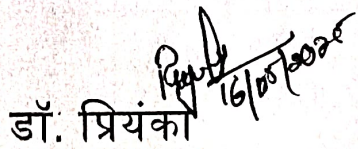 16/05/2025
डॉ. प्रियंका